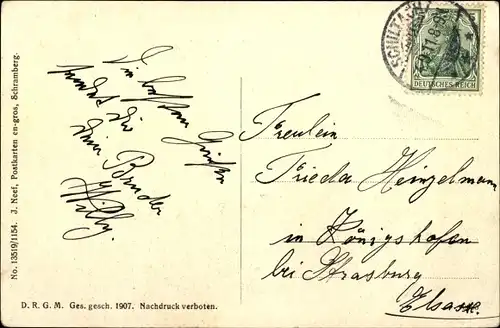 Die besten Grüße
sendet dir
dein Bruder
Willy.
Fräulein
Frieda Heinzelmann
in Königshofen
bei Strasburg
Elsass.
DEUTSCHES REICH
No. 13519/1154. J. Neef, Postkarten en-gros, Schramberg.
D. R. G. M. Ges. gesch. 1907. Nachdruck verboten.